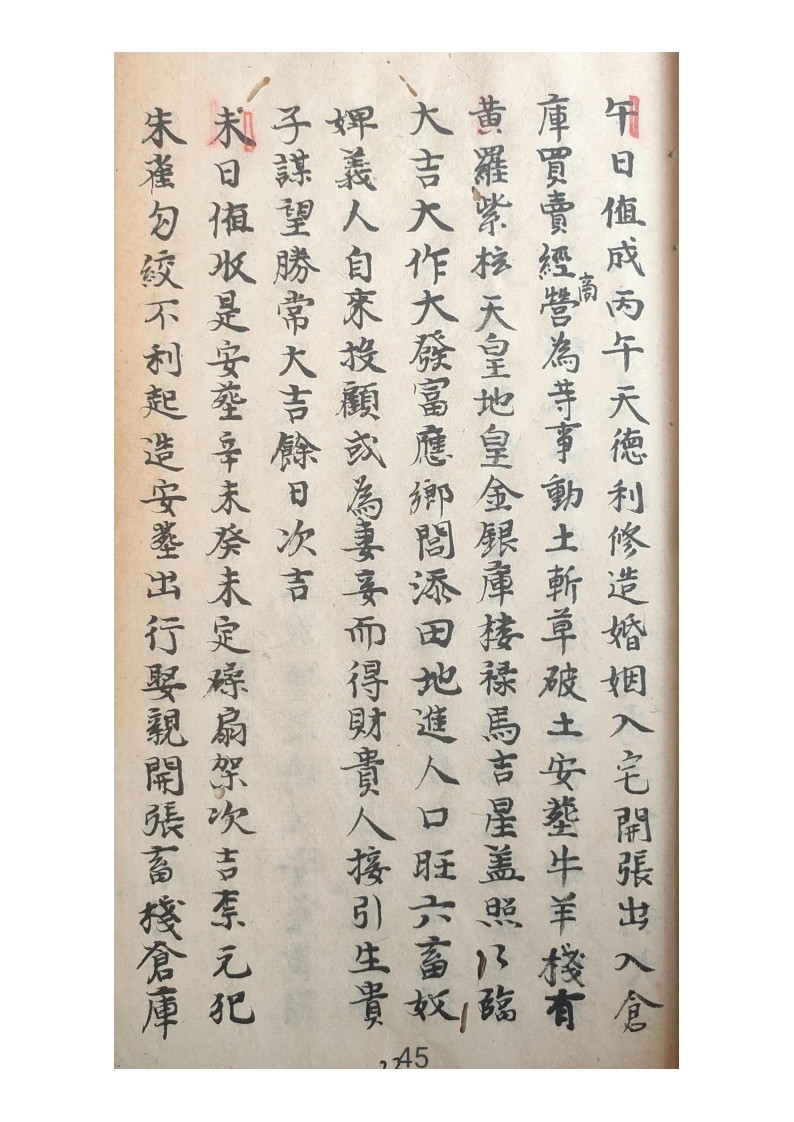 午日值成丙午天德利修造婚姻入宅開張出入倉
庫買賣經商營為䓁事動土斬草破土安塟牛羊棧有
黄羅紫柱天皇地皇金銀庫楼禄馬吉星盖照以臨
大吉大作大發富應鄉閭添田地進人口旺六畜奴
婢義人自來投顧或為妻妾而得財貴人接引生貴
子謀望勝常大吉餘日次吉
未日值收是安塟辛未癸未定磉扇架次吉柰元犯
朱雀勾絞不利起造安塟出行娶親開張畜棧倉庫
45